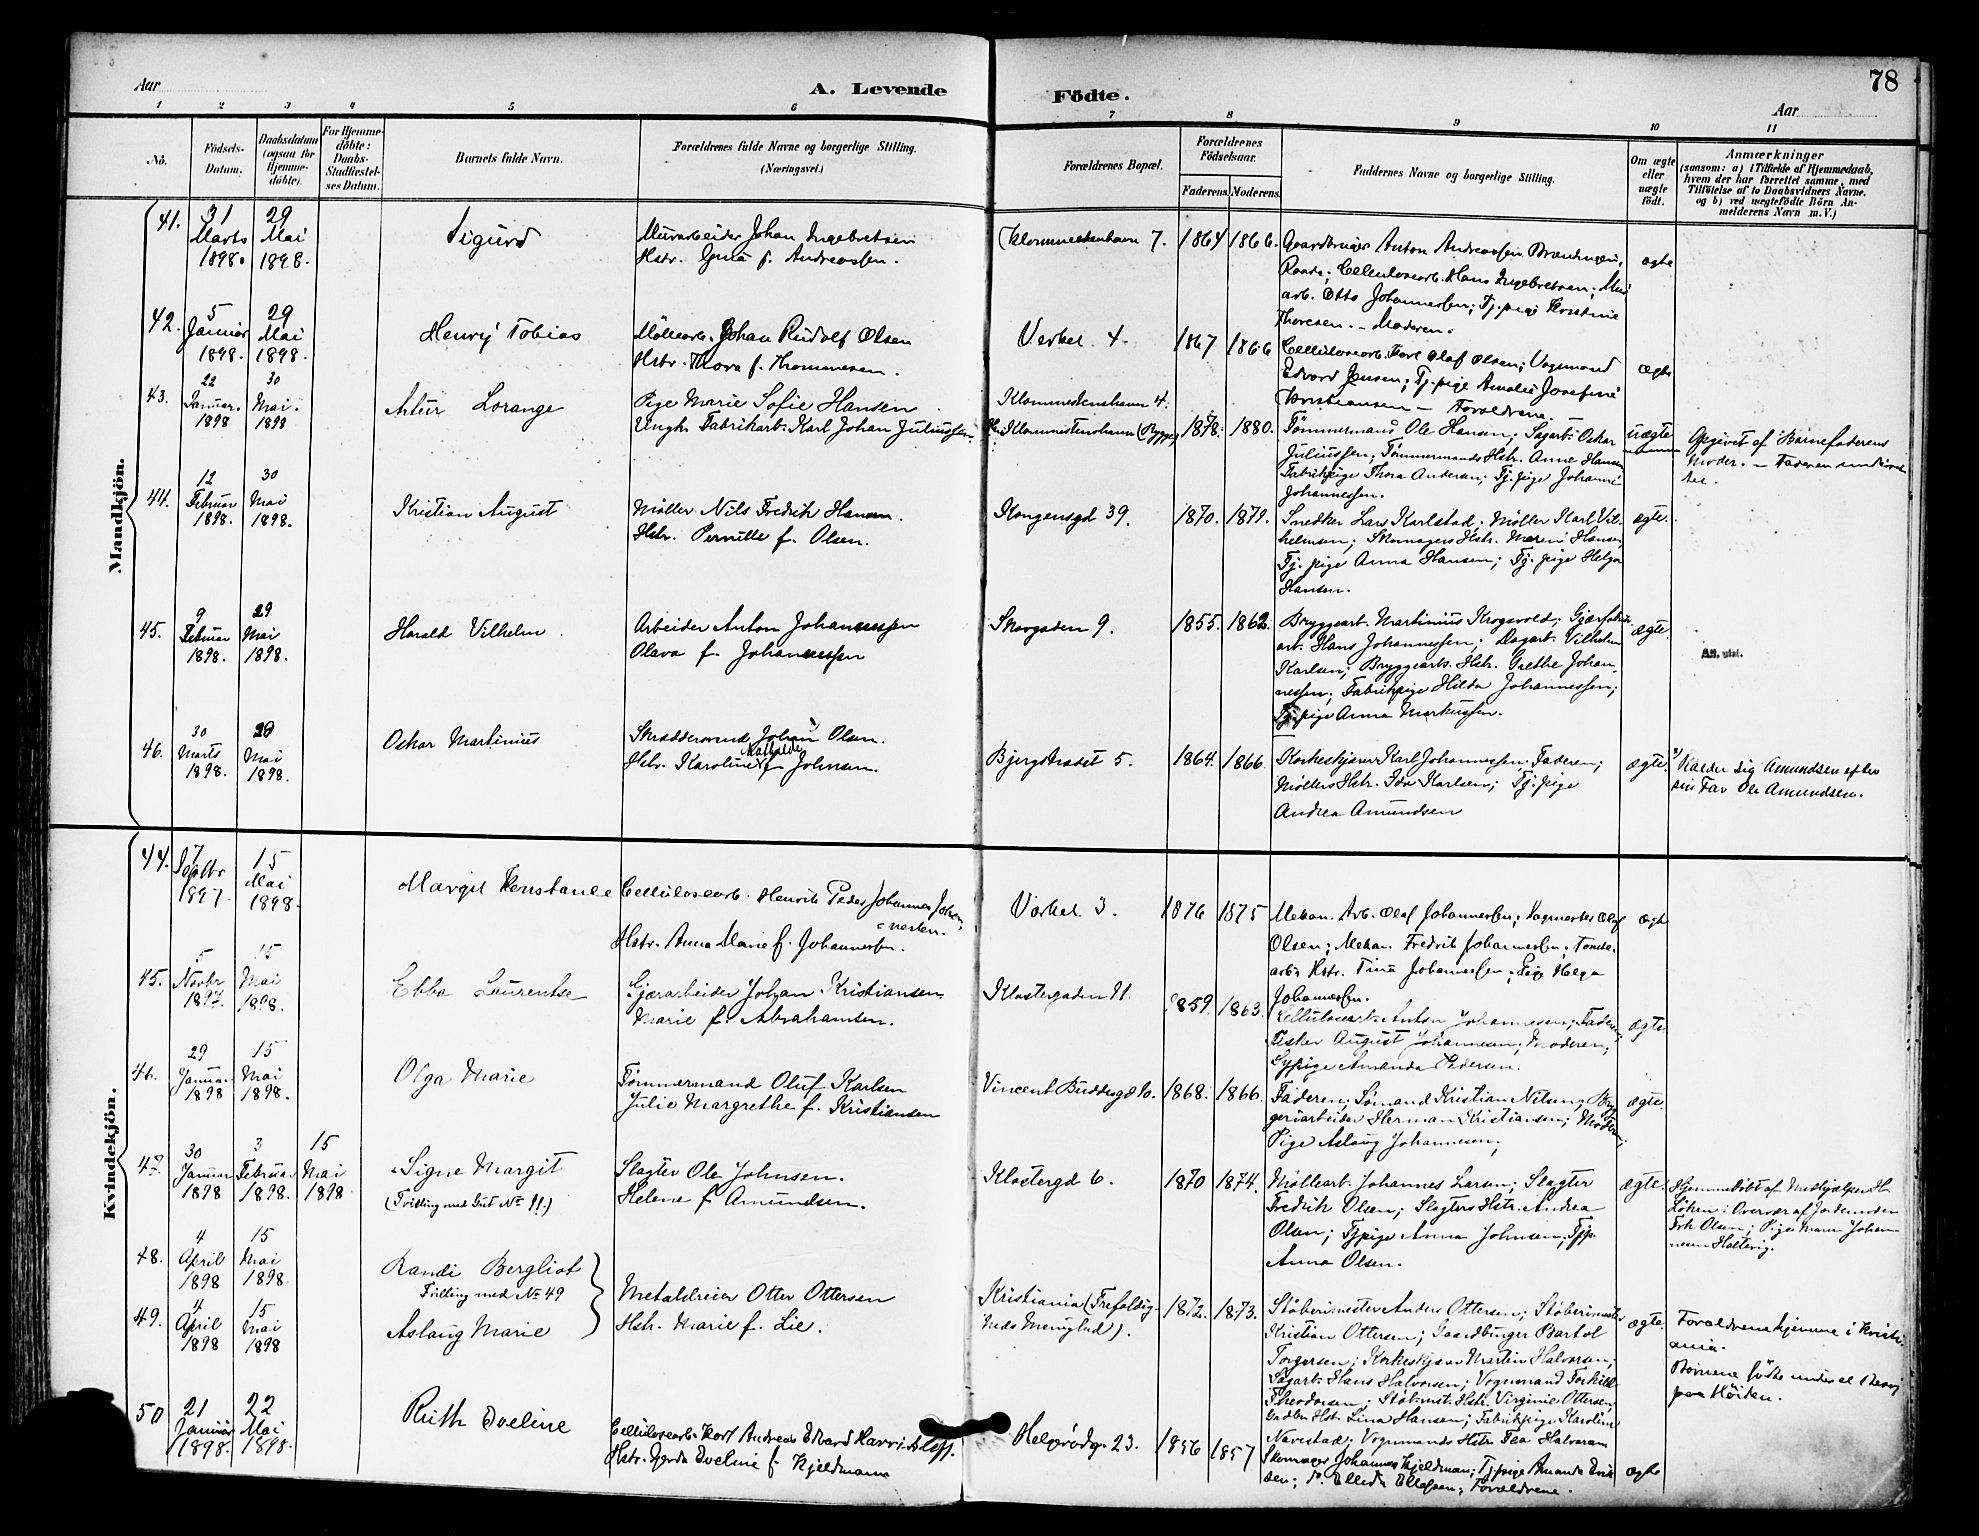 78
Aar
A. Levende
Födte.
Aar
1 2 3 4 5 6 7 8 9 10 11
No.
Födsels-
Datum.
Daabsdatum
(ogsaa for
Hjemme-
döbte).
For Hjemme-
döbte:
Daabs-
Stadfæstel-
ses Datum.
Barnets fulde Navn.
Forældrenes fulde Navne og borgerlige Stilling.
(Næringsvei.)
Forældrenes Bopæl.
Forældrenes
Födselsaar.
Faderens.
Moderens.
Faddernes Navne og borgerlige Stilling.
Om ægte
eller
uægte
födt.
Anmærkninger
(saasom: a) i Tilfælde af Hjemmedaab,
hvem der har forrettet samme, med
Tilföielse af to Daabsvidners Navne.
og b) ved uægtefödte Börn An-
melderens Navn m. V.)
Mandkjön.
41.
31
Marts
1898.
29
Mai
1898.
Sigurd
Murarbeider Johan Ingebretsen
Hstr. f. Andreassen.
7.
1864
1866.
Gaardbruger Anton Andreassen
Raade; Cellulosearb. Hans Ingebretsen; Mur
arb. Otto Johannessen; Tj.pige Kristine
Thoresen. - Moderen.
ægte
42.
5
Januar
1898.
29
Mai
1898.
Henry Tobias
Möllearb. Johan Rudolf Olsen
Hstr. Thora f. Thomassen.
Verket 4.
1867
1866
Cellulosearb. Olaf Olsen; Vognmand
Edvard Jensen; Tj.pige Amalie Josefine
Kristiansen - Forældrene.
ægte
43.
22
Januar.
1898
30
Mai.
1898
Artur Lorange
Pige Marie Sofie Hansen
Ungk. Fabrikarb. Karl Johan Juliussen
4.
(Rygge)
1878.
1880.
Tömmermand Ole Hansen; Sagarb. Oskar
Juliussen; Tömmermands Hstr. Anne Hansen
Fabrikpige Thora Andersen; Tj.pige Johanne
Johannessen.
uægte
Opgivet af Barnefaderens
Moder. - Faderen
44.
12
Februar
1898.
30
Mai
1898.
Kristian August
Möller Nils Fredrik Hansen.
Hstr. Pernille f. Olsen.
Kongensgd 39.
1870.
1871.
Snedker Lars Karlstad; Möller Karl Vil-
helmsen; Skomagers Hstr. Maren Hansen
Tj. pige Anna Hansen; Tj. pige Helga
Hansen.
ægte.
45.
9
Februar
1898.
29
Mai
1898.
Harald Vilhelm.
Arbeider Anton Johannessen
Olava f. Johannessen
Skovgaden 9.
1855.
1862.
Bryggearb. Martinius Krogsvold; Gjærfabrik
arb. Hans Johannessen; Dagarb. Vilhelm
Karlsen; Bryggearb. Hstr. Grethe Johan-
nessen; Fabrikpige Hilda Johannessen;
Tj.pige Anna Markussen.
ægte.
Att. utst.
46.
30
Marts
1898.
29
Mai
1898.
Oskar Martinius
Skræddersvend Johan Olsen.
Mathilde
Hstr. Karoline f. Johnsen.
Bjergstrædet 5.
1864.
1866.
Korkeskjærer Karl Johannessen; Faderen;
Möllers Hstr. Ida Karlsen; Tj.pige
Andrea Amundsen
ægte.
Kalder sig Amundsen efter
sin Far Ole Amundsen.
Kvindekjön.
44.
7
Septbr
1897.
15
Mai
1898.
Margit Konstance
Cellulosearb. Henrik Peder Johannes Johan-
nesen.
Hstr. Anna Marie f. Johannessen.
Værket 3.
1876
1875
Mekan. Arb. Olaf Johannessen; Olaf
Olsen; Mekan. Fredrik Johannessen; Tomte-
arb. Hstr. Tina Johannessen; Pige Helga
Johannessen.
ægte
45.
5
Novbr
1897.
15
Mai
1898.
Ebba Laurentse
Gjærarbeider Johan Kristiansen
Marie f. Abrahamsen.
Klostergaden 11.
1859.
1863.
Cellulosearb. Anton Johannesen; Faderen;
Fisker August Johannesen; Moderen;
Sypige Amanda Pedersen.
ægte.
46.
29
Januar
1898
15
Mai
1898.
Olga Marie
Tömmermand Oluf Karlsen
Julie Margrethe f. Kristiansen
Vincent Buddesgd 10.
1868.
1866.
Faderen; Sömand Kristian Nilsen; Bryg
geriarbeider Herman Kristiansen; Moderen;
Pige Aslaug Johannesen;
ægte.
47.
30
Januar
1898
3
Februar
1898.
15
Mai
1898
Signe Margit
(Tvilling med Gut No 11.)
Slagter Ole Johnsen.
Helene f. Amundsen.
Klostergd 6.
1870
1874.
Möllearb. Johannes Larsen; Slagter
Fredrik Olsen; Slagters Hstr. Andrea
Olsen; Tjpige Anna Johnsen; Tjp.
Anna Olsen.
ægte.
Hjemmedöbt af Medhjælper H.
Löken i Overvær af Jordemoder
Frk Olsen; Pige Maren Johan
nesen
48.
4
April
1898
15
Mai
1898.
Randi Bergliot
Tvilling med No 49
49.
4
April
1898
15
Mai
1898
Aslaug Marie
Metaldreier Otter Ottersen
Hstr. Marie f. Lie.
Kristiania (Trefoldig-
heds Menighed).
1872.
1873.
Stöberimester Anders Ottersen; Stöberimester
Kristian Ottersen; Gaardbruger Bartol
Torgersen; Korkeskjær Martin Halvorsen;
Sagarb. Hans Halvorsen; Vognmand Torkild
Theodorsen; Stöbmst. Hstr. Virginie Ottersen
Gadbr. Hstr. Lina Hansen; Fabrikpige Karoline
Navestad; Vognmands Hstr. Tea Halvorsen
ægte.
Forældrene hjemme i Kristi-
ania.
Börnene födte under et Besög
paa Höiden.
50
21
Januar
1898.
22
Mai
1898.
Ruth Eveline
Cellulosearb. Karl Andreas Edvard
Hstr. Gerda Eveline f. Kjeldmann
23.
1856
1857
Skomager Johannes Kjeldman; Tjpige Amanda Erik
sen; Do Elleda Ellefsen; Forældrene.
ægte